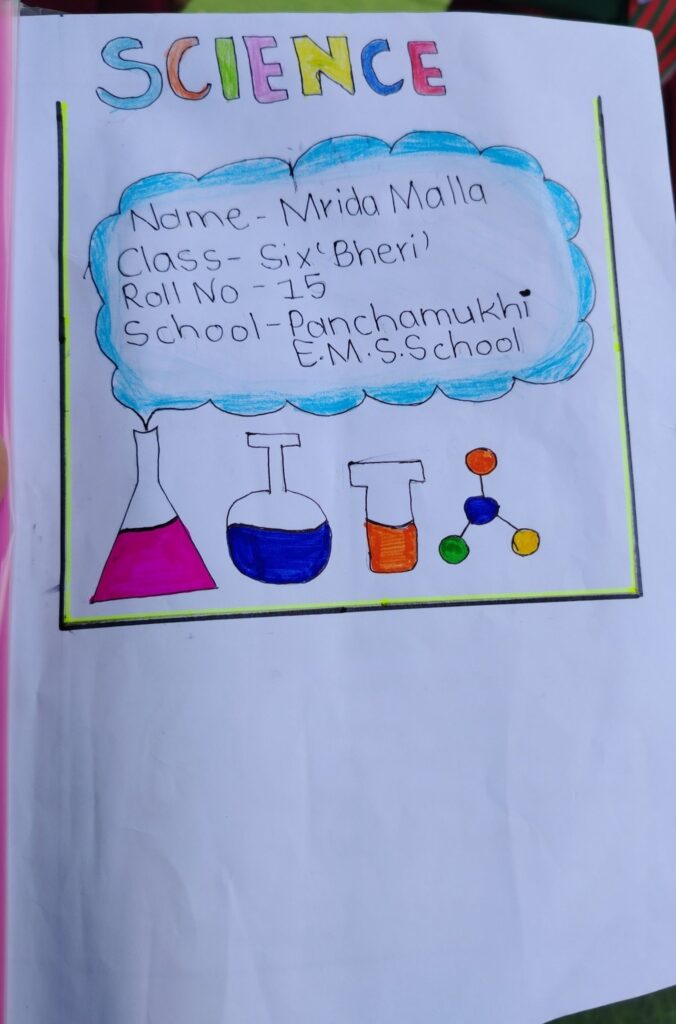 SCIENCE
Name - Mrida Malla
Class - Six 'Bheri'
Roll No - 15
School - Panchamukhi
E.M.S.School